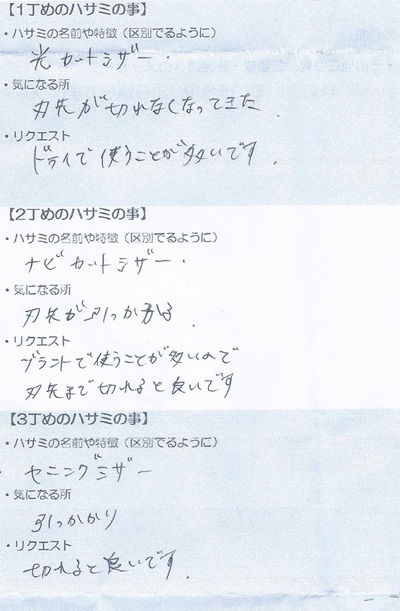 【1丁めのハサミの事】
・ハサミの名前や特徴（区別でるように）
光カットシザー.
・気になる所
刃先が切れなくなってきた.
・リクエスト
ドライで使うことが多いです.
【2丁めのハサミの事】
・ハサミの名前や特徴（区別でるように）
ナビカットシザー.
・気になる所
刃先が引っかかる.
・リクエスト
ブラントで使うことが多いので
刃先まで切れると良いです
【3丁めのハサミの事】
・ハサミの名前や特徴（区別でるように）
セニングシザー
・気になる所
引っかかり
・リクエスト
切れると良いです.